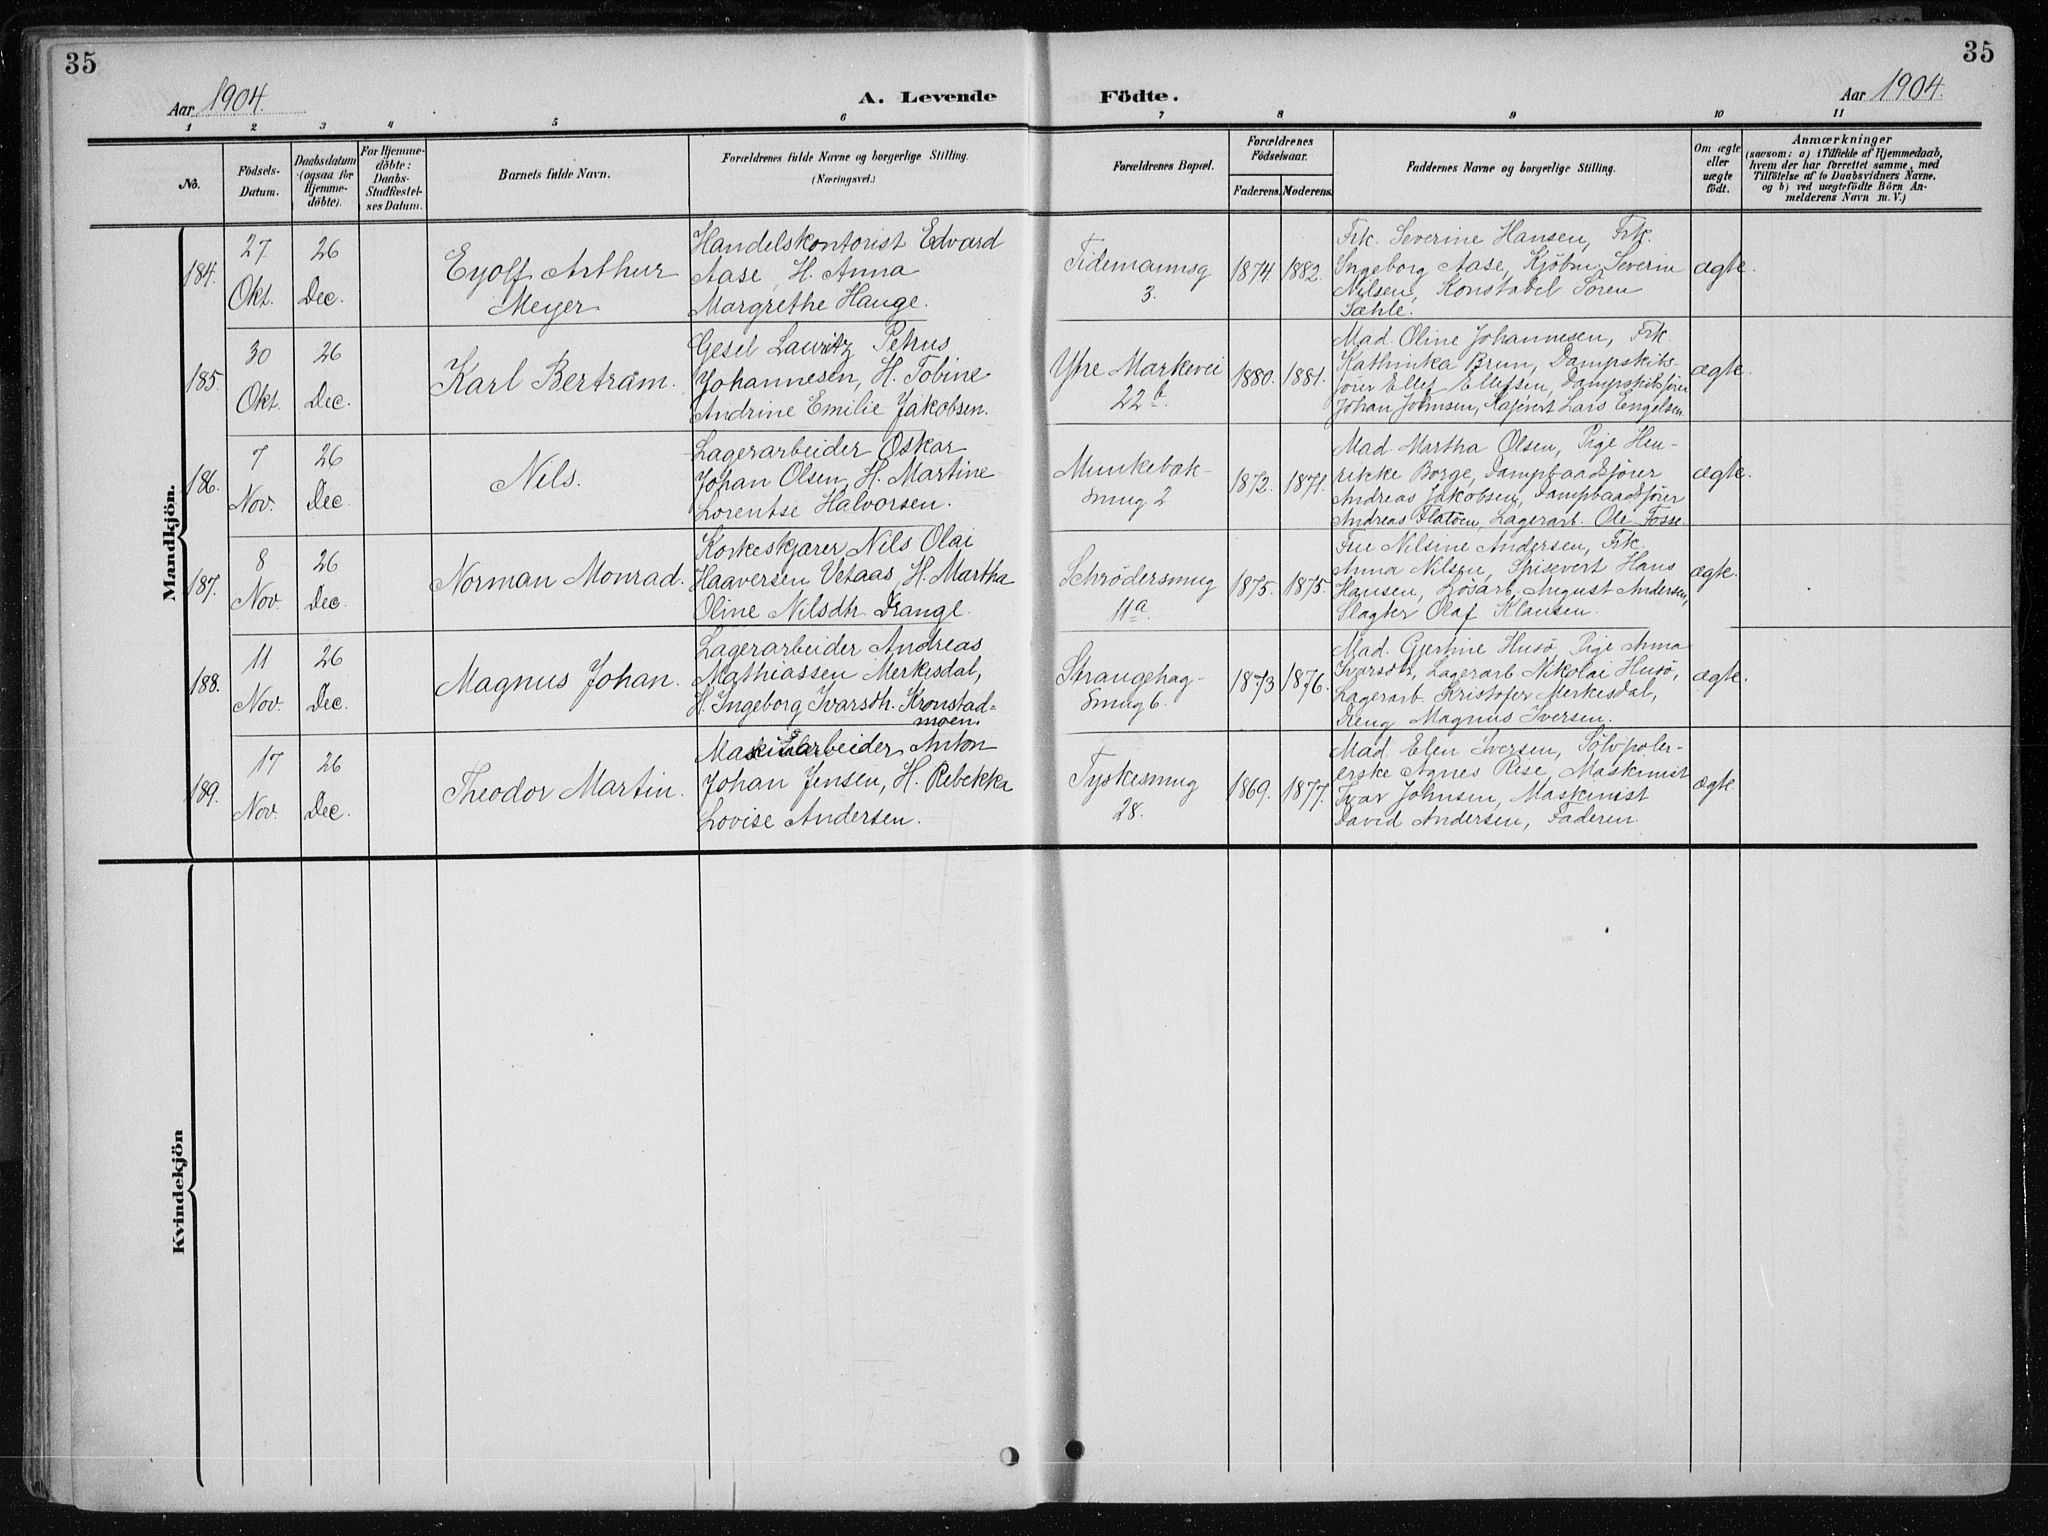 35
35
Aar 1904.
A. Levende
Födte.
Aar 1904.
1 2 3 4 5 6 7 8 9 10 11
No.
Födsels-
Datum.
Daabsdatum
(ogsaa for
Hjemme-
döbte).
For Hjemme-
döbte:
Daabs-
Stadfæstel-
ses Datum.
Barnets fulde Navn.
Forældrenes fulde Navne og borgerlige Stilling.
(Næringsvei.)
Forældrenes Bopæl.
Forældrenes
Födselsaar.
Faderens.
Moderens.
Faddernes Navne og borgerlige Stilling.
Om ægte
eller
uægte
födt.
Anmærkninger
(saasom: a) i Tilfælde af Hjemmedaab,
hvem der har forrettet samme, med
Tilföielse af to Daabsvidners Navne,
og b) ved uægtefödte Börn An-
melderens Navn m. V.)
Mandkjön.
184.
27
Okt.
26
Dec.
Eyolf Arthur
Meyer
Handelskontorist Edvard
Aase, H. Anna
Margrethe Hauge.
Tidemannsg
3.
1874
1882.
Frk. Severine Hansen, Frk.
Ingeborg Aase, Kjöbm. Severin
Nilsen, Konstabel Sören
Sæhle.
ægte.
185.
30
Okt.
26
Dec.
Karl Bertram.
Gesel Lauritz Petrus
Johannesen, H. Tobine
Andrine Emilie Jakobsen.
Ytre Markevei
22 b.
1880.
1881.
Mad. Oline Johannesen, Frk.
Kathinka Brun, Dampskibs-
förer Ellef Ellefsen, Dampskibsförer
Johan Johnsen, Kafévert Lars Engelsen.
ægte.
186.
7
Nov.
26
Dec
Nils.
Lagerarbeider Oskar
Johan Olsen, H. Martine
Lorentse Halvorsen.
Munkebæk-
smug 2
1872.
1871.
Mad. Martha Olsen, Pige Hen-
rikke Borge, Dampbaadsförer
Andreas Jakobsen, Dampbaadsförer
Andreas Flatöen, Lagerarb. Ole Fosse.
ægte.
187.
8
Nov.
26
Dec.
Norman Monrad.
Korkeskjærer Nils Olai
Haaversen Vetaas, H. Martha
Oline Nilsdtr. Drange.
Schrödersmug
11 a.
1875.
1875.
Fru Nilsine Andersen, Frk.
Anna Nilsen, Spisevert Hans
Hansen, Lösarb. August Andersen,
Slagter Olaf Klausen.
ægte.
188.
11
Nov.
26
Dec.
Magnus Johan.
Lagerarbeider Andreas
Mathiassen Merkesdal,
H. Ingeborg Ivarsdtr. Kronstad-
moen.
Strangehag-
smug 6.
1873
1876.
Mad. Gjertine Husö, Pige Anna
Ivarsdtr, Lagerarb. Nikolai Husö,
Lagerarb. Kristofer Merkesdal,
Dreng Magnus Iversen.
ægte.
189.
17
Nov.
26
Dec.
Theodor Martin.
Maskinarbeider Anton
Johan Jensen, H. Rebekka
Lovise Andersen.
Tyskesmug
28.
1869.
1877.
Mad. Elen Iversen, Sölvpoler-
erske Agnes Rise, Maskinist
Ivar Johnsen, Maskinist
David Andersen, Faderen.
ægte.
Kvindekjön